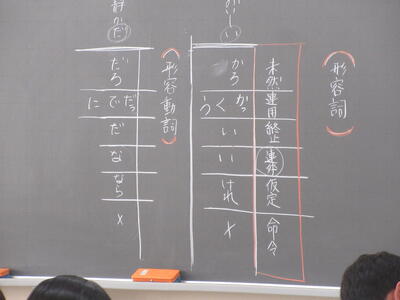 （形容詞）
未然
連用
終止
連体
仮定
命令
しい
かろ
かっ
く
う
い
い
けれ
×
（形容動詞）
だ
だろ
だっ
で
に
だ
な
なら
×